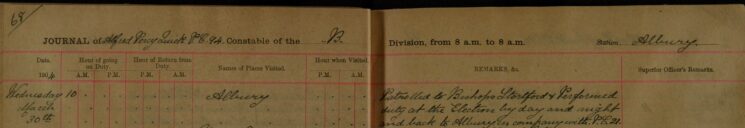 68
JOURNAL of Alfred Percy Quick P.C. 94. Constable of the B. Division, from 8 a.m. to 8 a.m. Station Albury.
Date. Hour of going on Duty. Hour of Return from Duty. Names of Places Visited. Hour when Visited. REMARKS, &c. Superior Officer's Remarks.
190 A.M. P.M. A.M. P.M. P.M. A.M.
Wednesday 10 Albury Patrolled to Bishops Stortford & Performed
March duty at the Election by day and night
30th and back to Albury in company with P.C. 21.